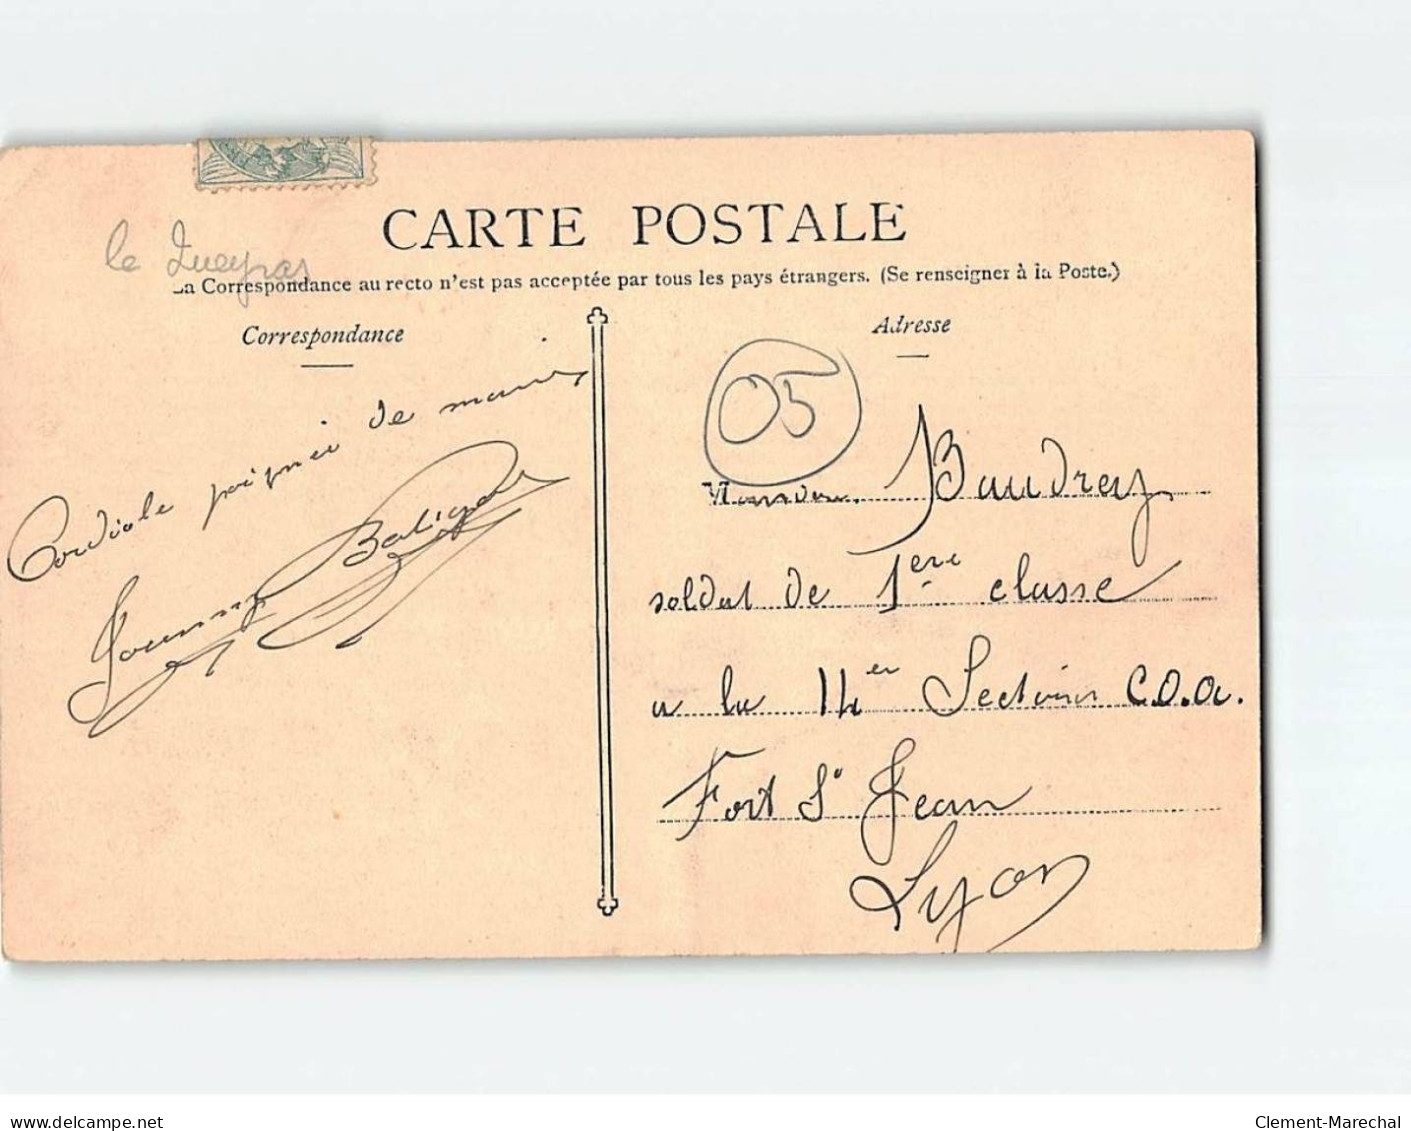 le Queyras
CARTE POSTALE
La Correspondance au recto n'est pas acceptée par tous les pays étrangers. (Se renseigner à la Poste.)
Correspondance
Adresse
05
Cordiale poignée de mains
Monsieur Baudrey
soldat de 1ère classe
a la 14er Section C.O.A.
Fort St Jean
Lyon
delcampe.net
Clement-Marechal